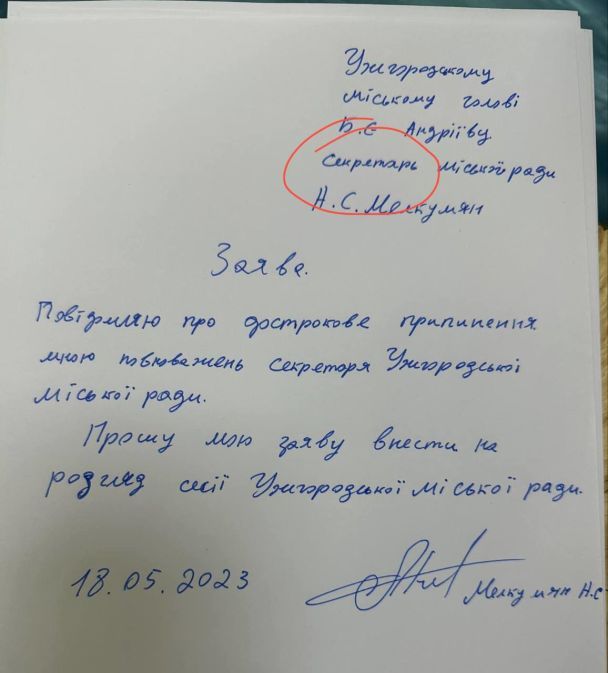 Ужгородському
міському голові
Б.Є Андріїву
Секретарь міської ради
Н.С. Мелкумян
Заява.
Повідомляю про дострокове припинення
мною повноважень секретаря Ужгородської
міської ради.
Прошу мою заяву внести на
розгляд сесії Ужгородської міської ради.
18.05.2023
Мелкумян Н.С